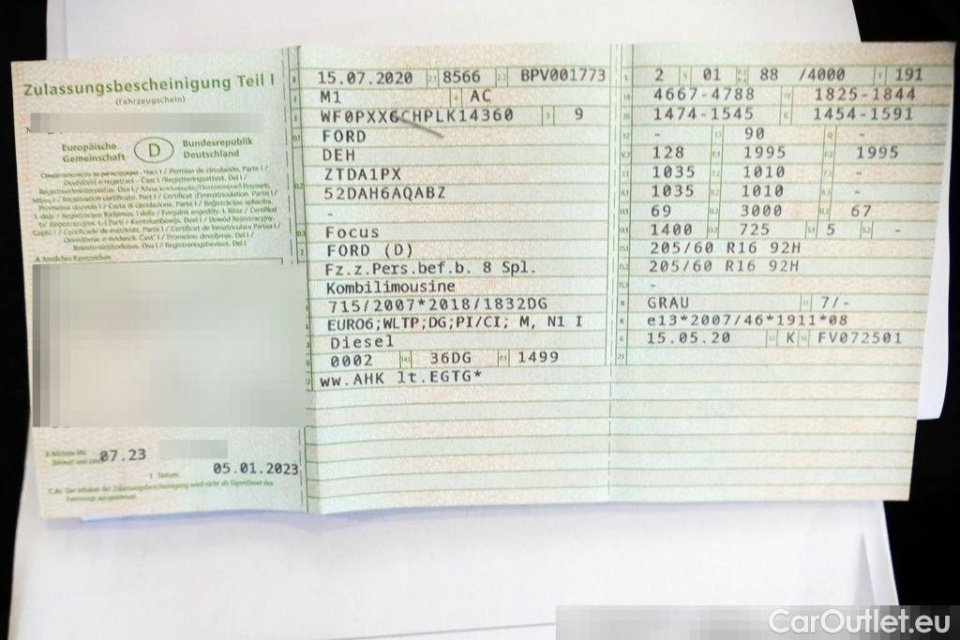 Zulassungsbescheinigung Teil I
(Fahrzeugschein)
Europäische Gemeinschaft
D
Bundesrepublik Deutschland
07.23
05.01.2023
15.07.2020 8566 BPV001773
M1 AC
WF0PXX6CHPLK14360 9
FORD
DEH
ZTDA1PX
52DAH6AQABZ
-
Focus
FORD (D)
Fz.z.Pers.bef.b. 8 Spl.
Kombilimousine
715/2007*2018/1832DG
EURO6;WLTP;DG;PI/CI; M, N1 I
Diesel
0002 36DG 1499
ww.AHK lt.EGTG*
2 01 88 /4000 191
4667-4788 1825-1844
1474-1545 1454-1591
- 90 -
128 1995 1995
1035 1010 -
1035 1010 -
69 3000 67
1400 725 5 -
205/60 R16 92H
205/60 R16 92H
-
GRAU 7/-
e13*2007/46*1911*08
15.05.20 K FV072501
CarOutlet.eu